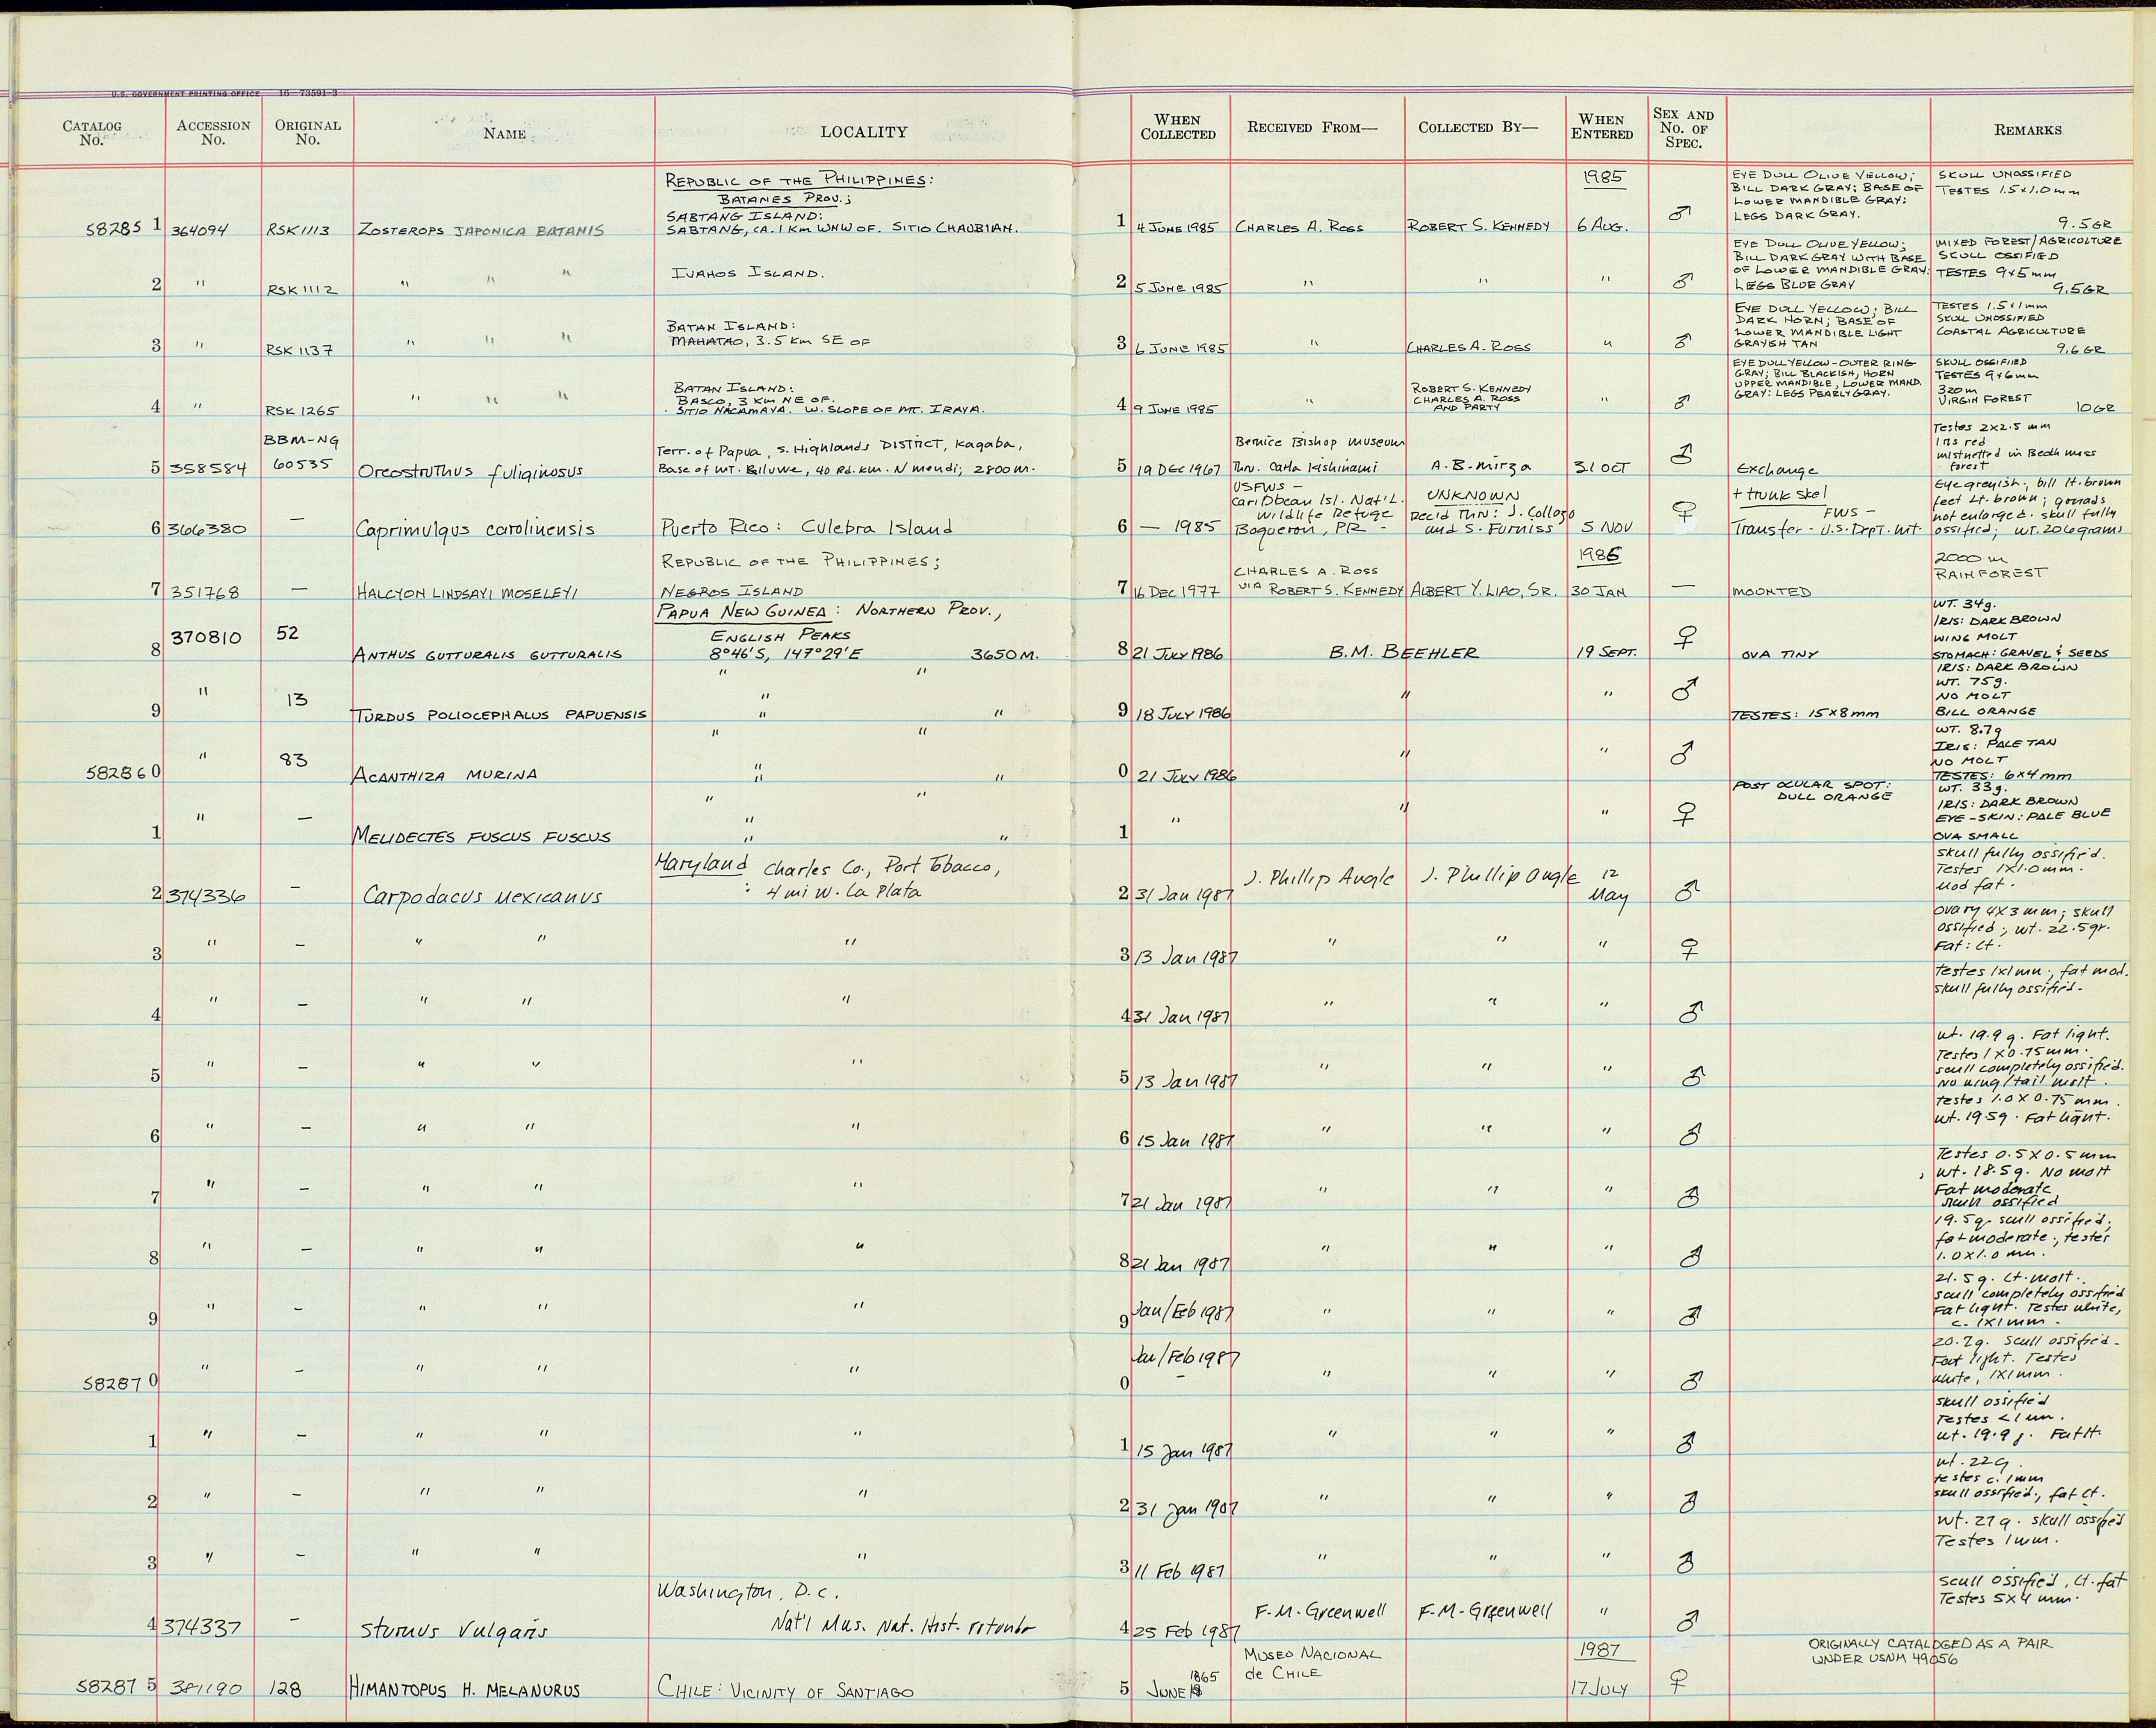 U.S. GOVERNMENT PRINTING OFFICE 16—73591-3
CATALOG No. ACCESSION No. ORIGINAL No. NAME LOCALITY WHEN COLLECTED RECEIVED FROM— COLLECTED BY— WHEN ENTERED SEX AND No. OF SPEC. REMARKS
REPUBLIC OF THE PHILIPPINES:
BATANES PROV.;
SABTANG ISLAND:
58285 1 364094 RSK 1113 ZOSTEROPS JAPONICA BATANIS SABTANG, CA. 1 KM WNW OF. SITIO CHAUBIAN.
1 4 JUNE 1985 CHARLES A. ROSS ROBERT S. KENNEDY 1985 6 AUG. ♂
EYE DULL OLIVE YELLOW;
BILL DARK GRAY; BASE OF
LOWER MANDIBLE GRAY;
LEGS DARK GRAY.
SKULL UNOSSIFIED
TESTES 1.5×1.0mm
9.5GR
2 " RSK 1112 " " " IVAHOS ISLAND.
2 5 JUNE 1985 " " " ♂
EYE DULL OLIVE YELLOW;
BILL DARK GRAY WITH BASE
OF LOWER MANDIBLE GRAY;
LEGS BLUE GRAY
MIXED FOREST/AGRICULTURE
SKULL OSSIFIED
TESTES 9×5mm
9.5GR
BATAN ISLAND:
3 " RSK 1137 " " " MAHATAO, 3.5 KM SE OF
3 6 JUNE 1985 " CHARLES A. ROSS " ♂
EYE DULL YELLOW; BILL
DARK HORN; BASE OF
LOWER MANDIBLE LIGHT
GRAYISH TAN
TESTES 1.5×1mm
SKULL UNOSSIFIED
COASTAL AGRICULTURE
9.6GR
BATAN ISLAND:
BASCO, 3 KM NE OF.
4 " RSK 1265 " " " SITIO NACAMAYA. W. SLOPE OF MT. IRAYA.
4 9 JUNE 1985 " ROBERT S. KENNEDY
CHARLES A. ROSS
AND PARTY " ♂
EYE DULL YELLOW-OUTER RING
GRAY; BILL BLACKISH, HORN
UPPER MANDIBLE, LOWER MAND.
GRAY: LEGS PEARLY GRAY.
SKULL OSSIFIED
TESTES 9×6mm
320m
VIRGIN FOREST
10GR
BBM-NG
5 358584 60535 Oreostruthus fuliginosus Terr. of Papua, S. Highlands DISTRICT, Kagaba,
Base of MT. Giluwe, 40 Rd. Km. N Mendi; 2800m.
5 19 DEC 1967 Bernice Bishop Museum
Thru. Carla Kishinami A.B. Mirza 31 OCT ♂ Exchange
Testes 2×2.5 mm
Iris red
mistnetted in Beech moss
forest
6 366380 — Caprimulgus carolinensis Puerto Rico: Culebra Island
6 — 1985 USFWS –
Caribbean Isl. Nat'l.
Wildlife Refuge
Boqueron, PR –
UNKNOWN
Rec'd Thru: J. Collazo
and S. Furniss 5 NOV ♀
+ trunk skel
FWS –
Transfer - U.S. Dept. Int.
Eye greyish; bill lt. brown
feet Lt. brown; gonads
not enlarged. skull fully
ossified; wt. 206 grams
REPUBLIC OF THE PHILIPPINES;
7 351768 — HALCYON LINDSAYI MOSELEYI NEGROS ISLAND
7 16 DEC 1977 CHARLES A. ROSS
VIA ROBERT S. KENNEDY ALBERT Y. LIAO, SR. 1986 30 JAN — MOUNTED
2000 m
RAINFOREST
PAPUA NEW GUINEA: NORTHERN PROV.,
ENGLISH PEAKS
8 370810 52 ANTHUS GUTTURALIS GUTTURALIS 8°46'S, 147°29'E 3650M.
8 21 JULY 1986 B.M. BEEHLER 19 SEPT. ♀ OVA TINY
WT. 34g.
IRIS: DARK BROWN
WING MOLT
STOMACH: GRAVEL & SEEDS
9 " 13 TURDUS POLIOCEPHALUS PAPUENSIS " " " " "
9 18 JULY 1986 " " ♂ TESTES: 15×8mm
IRIS: DARK BROWN
WT. 75g.
NO MOLT
BILL ORANGE
582860 " 83 ACANTHIZA MURINA " " " " "
0 21 JULY 1986 " " ♂
WT. 8.7g
IRIS: PALE TAN
NO MOLT
TESTES: 6×4mm
1 " — MELIDECTES FUSCUS FUSCUS " " " " "
1 " " " ♀ POST OCULAR SPOT:
DULL ORANGE
WT. 33g.
IRIS: DARK BROWN
EYE-SKIN: PALE BLUE
OVA SMALL
2 374336 — Carpodacus mexicanus Maryland : Charles Co., Port Tobacco,
4 mi W. La Plata
2 31 Jan 1987 J. Phillip Angle J. Phillip Angle 12 May ♂
Skull fully ossified.
Testes 1×1.0mm.
Mod fat.
3 " — " " "
3 13 Jan 1987 " " " ♀
Ovary 4×3 mm; skull
ossified; wt. 22.5gr.
Fat: Lt.
4 " — " " "
4 31 Jan 1987 " " " ♂
testes 1×1mm; fat mod.
skull fully ossified.
5 " — " " "
5 13 Jan 1987 " " " ♂
wt. 19.9 g. Fat light.
Testes 1×0.75mm.
scull completely ossified.
No wing/tail molt.
6 " — " " "
6 15 Jan 1987 " " " ♂
testes 1.0×0.75 mm.
wt. 19.5g. Fat light.
7 " — " " "
7 21 Jan 1987 " " " ♂
Testes 0.5×0.5mm
wt. 18.5g. No molt
Fat moderate
skull ossified
8 " — " " "
8 21 Jan 1987 " " " ♂
19.5g. scull ossified;
fat moderate; testes
1.0×1.0 mm.
9 " — " " "
9 Jan/Feb 1987 " " " ♂
21.5g. Lt. molt.
scull completely ossified
Fat light. Testes white,
c. 1×1mm.
582870 " — " " "
0 Jan/Feb 1987 " " " ♂
20.7g. Scull ossified.
Fat light. Testes
white, 1×1mm.
1 " — " " "
1 15 Jan 1987 " " " ♂
skull ossified
Testes <1mm.
wt. 19.9g. Fat lt.
2 " — " " "
2 31 Jan 1987 " " " ♂
wt. 22g.
testes c. 1mm
skull ossified, fat Lt.
3 " — " " "
3 11 Feb 1987 " " " ♂
wt. 21g. skull ossified
Testes 1mm.
4 374337 — Sturnus vulgaris Washington, D.C.
Nat'l Mus. Nat. Hist. rotunda
4 25 Feb 1987 F.M. Greenwell F.M. Greenwell " ♂
Scull ossified, Lt. fat
Testes 5×4 mm.
58287 5 381190 128 HIMANTOPUS H. MELANURUS CHILE: VICINITY OF SANTIAGO
5 JUNE 1865 MUSEO NACIONAL
de CHILE 1987 17 JULY ♀
ORIGINALLY CATALOGED AS A PAIR
UNDER USNM 49056